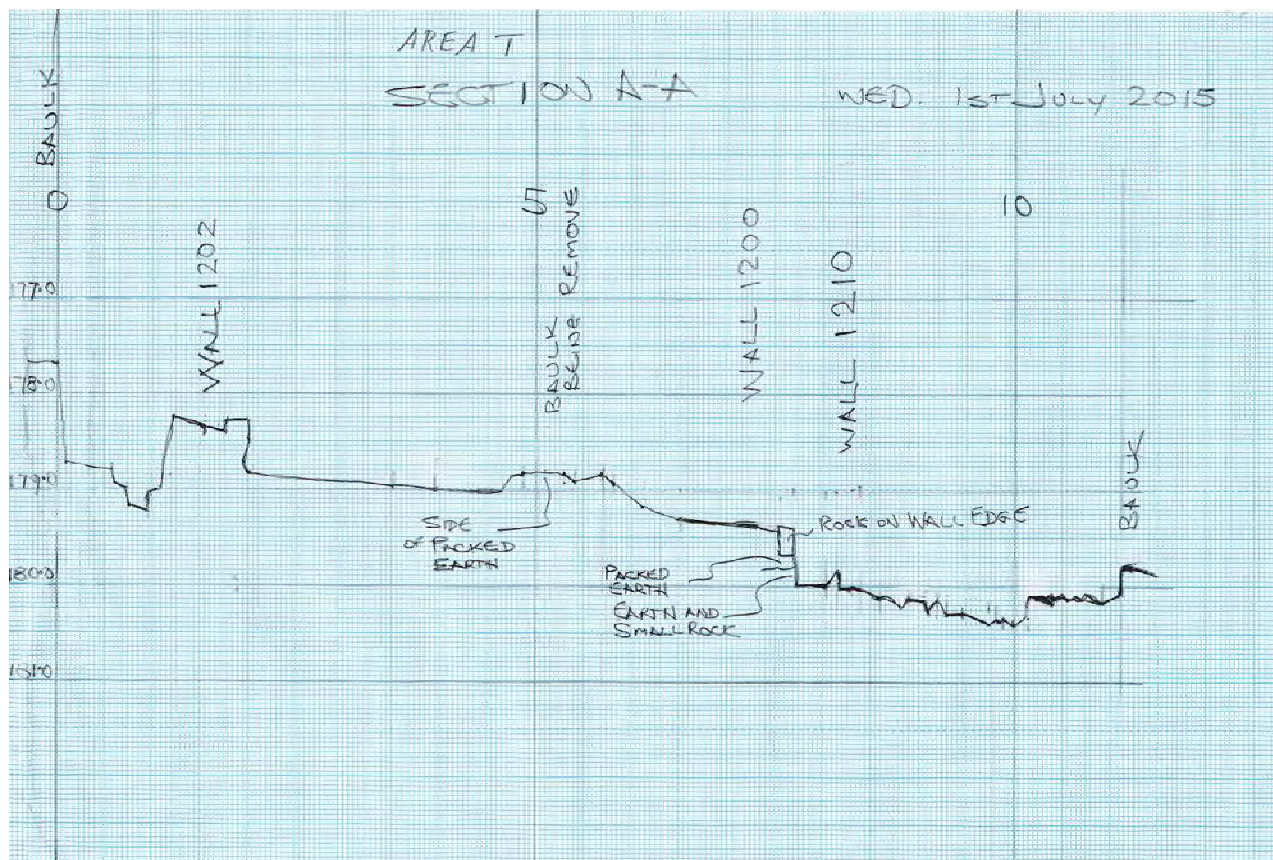 AREA T
SECTION A-A
WED. 1ST JULY 2015
BAULK
0
5
10
WALL 1202
BAULK
BEING REMOVE
WALL 1200
WALL 1210
BAULK
177.0
178.0
179.0
180.0
181.0
SIDE
OF PACKED
EARTH
ROCK ON WALL EDGE
PACKED
EARTH
EARTH AND
SMALL ROCK